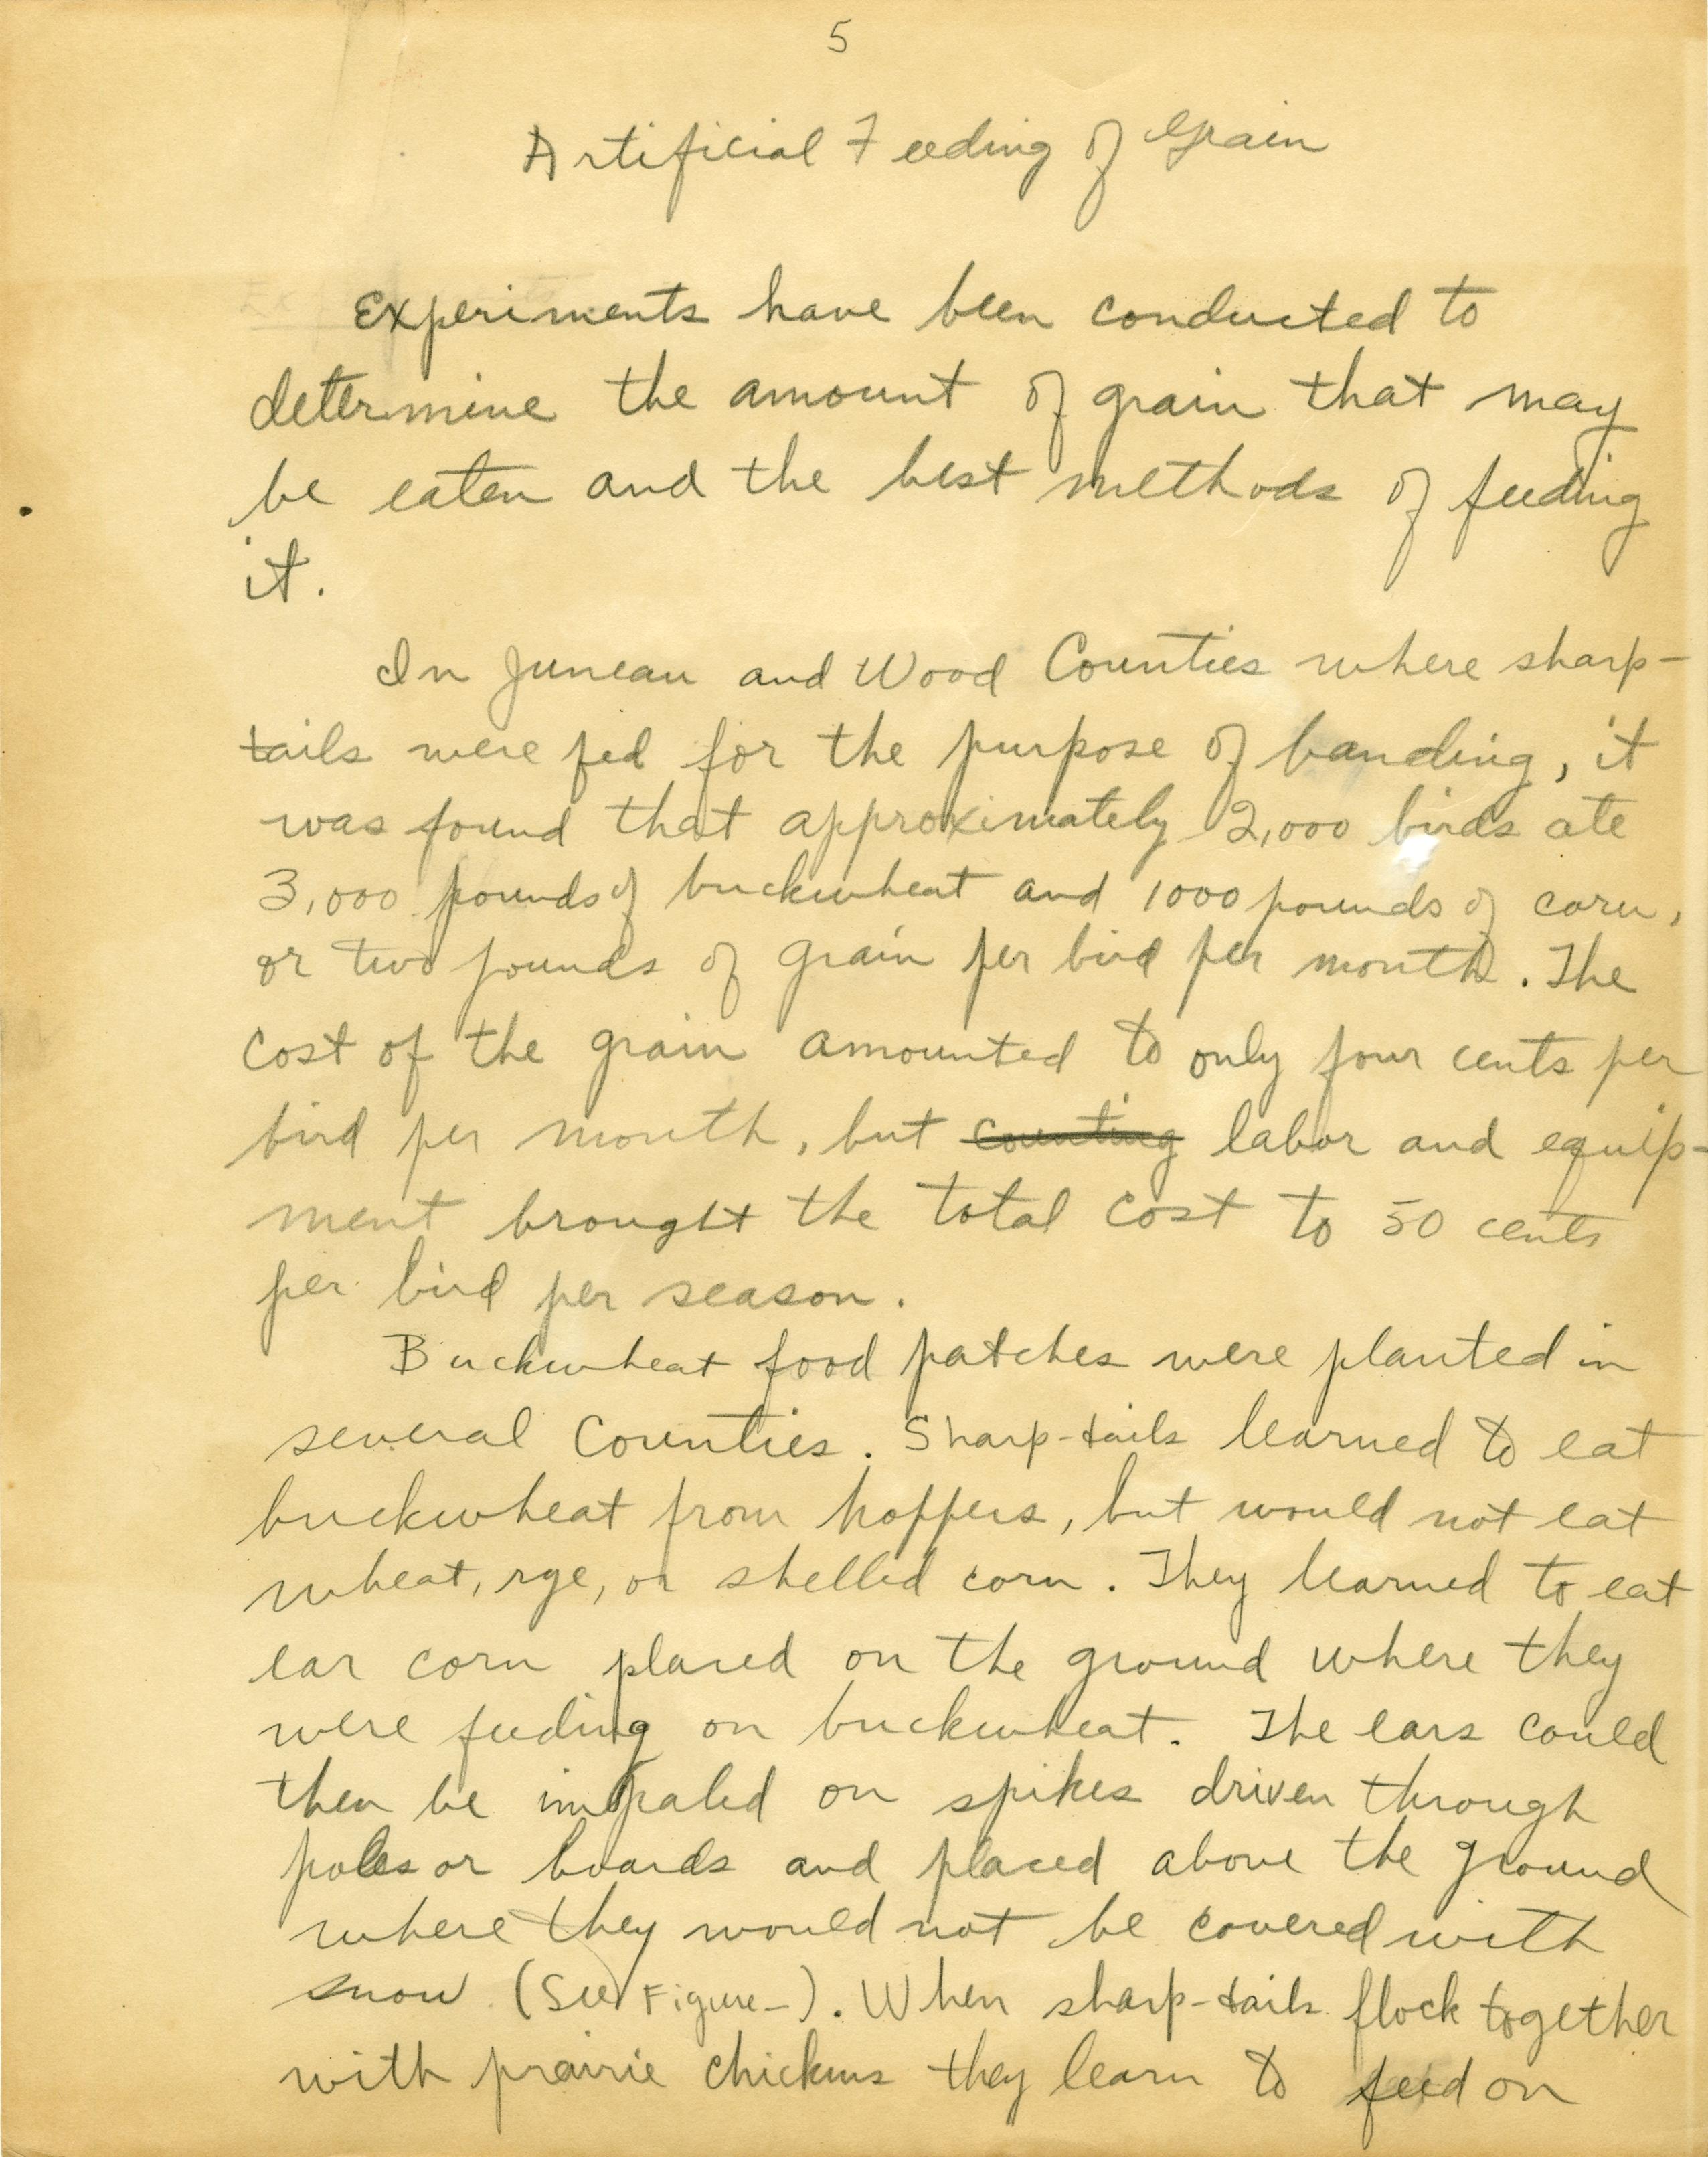 5
Artificial Feeding of Grain
Experiments have been conducted to
determine the amount of grain that may
be eaten and the best methods of feeding
it.
In Juneau and Wood Counties where sharp-
tails were fed for the purpose of banding, it
was found that approximately 2,000 birds ate
3,000 pounds of buckwheat and 1000 pounds of corn,
or two pounds of grain per bird per month. The
cost of the grain amounted to only four cents per
bird per month, but counting labor and equip-
ment brought the total cost to 50 cents
per bird per season.
Buckwheat food patches were planted in
several Counties. Sharp-tails learned to eat
buckwheat from hoppers, but would not eat
wheat, rye, or shelled corn. They learned to eat
ear corn placed on the ground where they
were feeding on buckwheat. The ears could
then be impaled on spikes driven through
poles or boards and placed above the ground
where they would not be covered with
snow (See Figure-). When sharp-tails flock together
with prairie chickens they learn to feed on